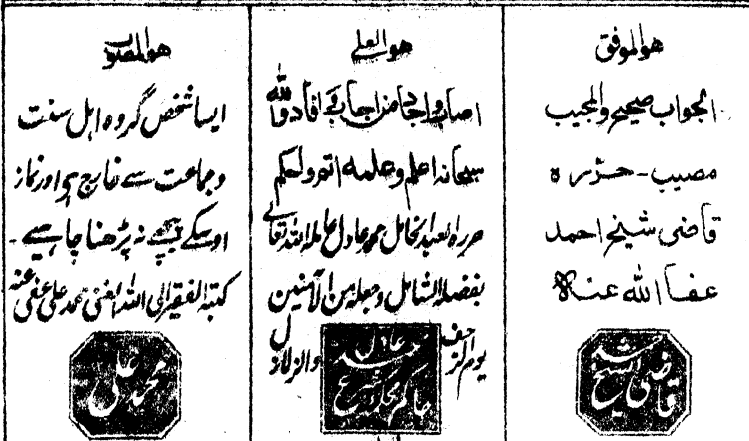 هو الموفق
الجواب صحیح والمجیب
مصیب - حررہ
قاضی شیخ احمد
عفا اللہ عنہ
قاضی شیخ احمد
هو العلی
اصاب واجاد من اجاب وافاد واللہ
سبحانہ اعلم وعلمہ اتم واحکم
حررہ العبد الخامل محمد عادل عاملہ اللہ تعالی
بفضلہ الشامل وجعلہ من الآمنین
یوم الرجف والزلازل
محمد عادل
حاکم محکمہ شرع
هو المصوب
ایسا شخص گروہ اہل سنت
وجماعت سے خارج ہی اور نماز
اوسکے پیچھے نہ پڑھنا چاہیے -
کتبہ الفقیر الی اللہ الغنی محمد علی عفی عنہ
محمد علی